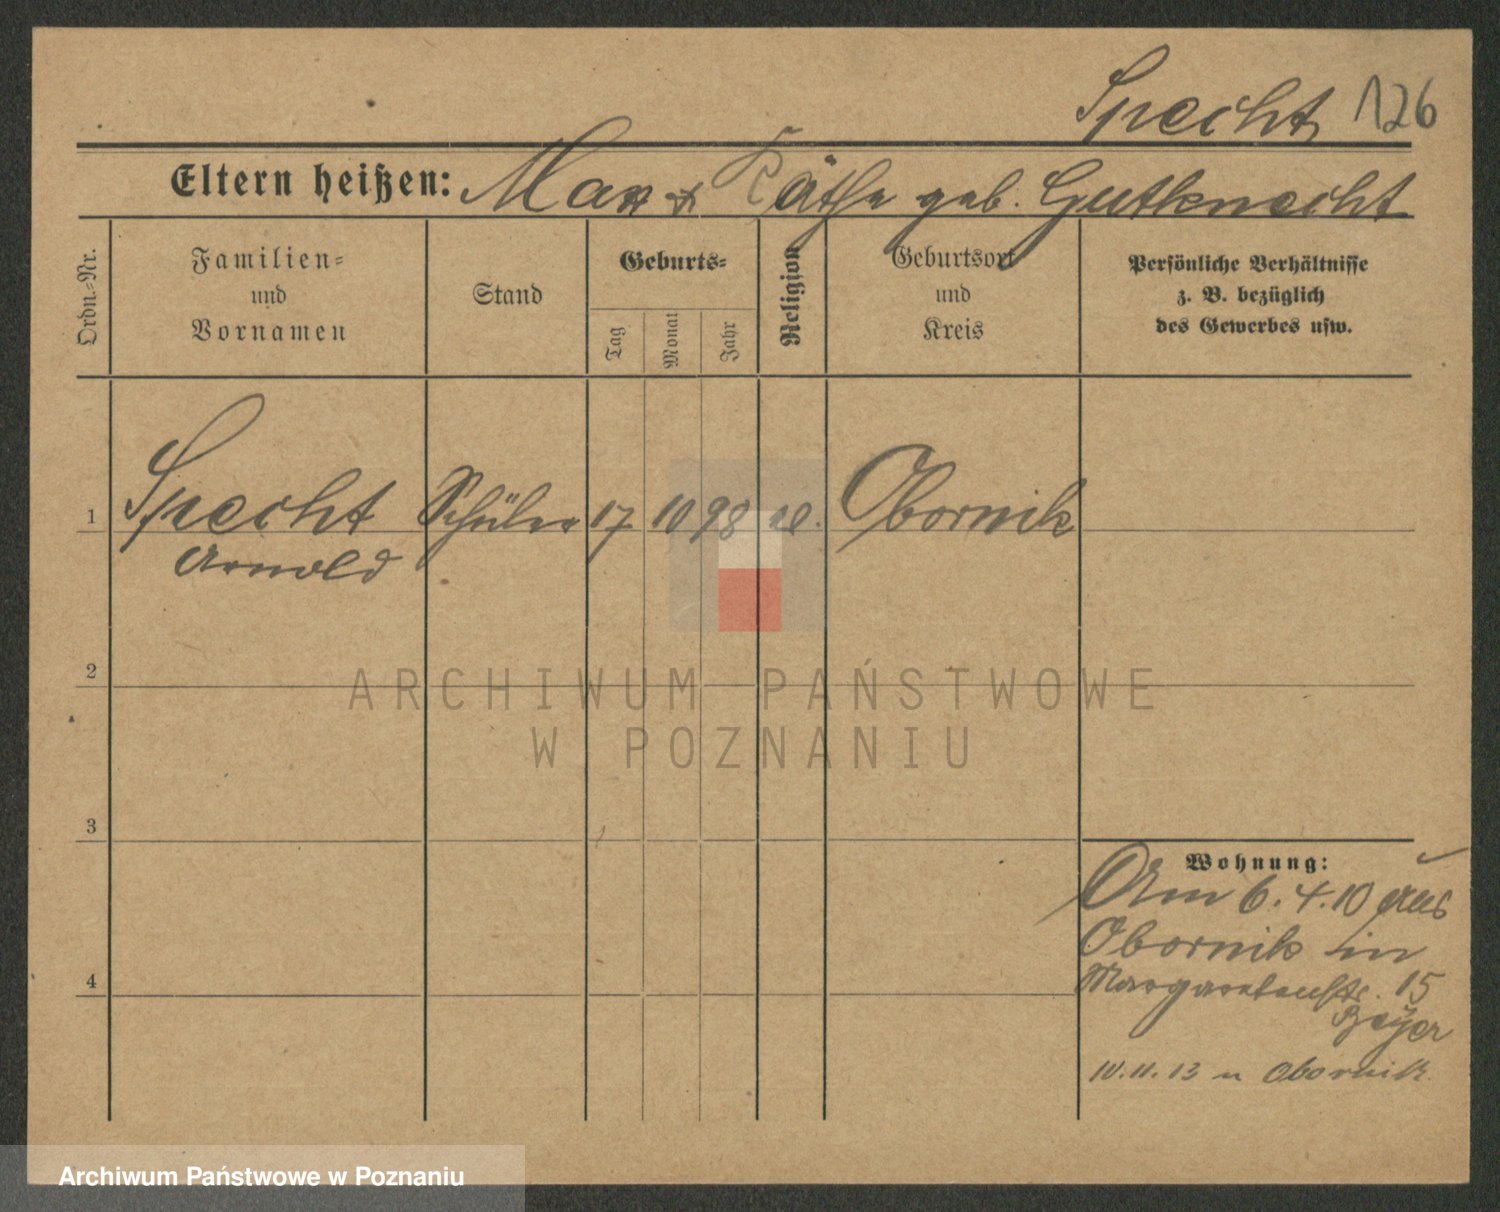 Specht 126
Eltern heißen: Max & Käthe geb. Gutknecht
Ordn.-Nr.
Familien-
und
Vornamen
Stand
Geburts-
Tag
Monat
Jahr
Religion
Geburtsort
und
Kreis
Persönliche Verhältnisse
z. B. bezüglich
des Gewerbes usw.
1 Specht Schüler 17 10 98 Obornik
Arnold
2
ARCHIWUM PAŃSTWOWE
W POZNANIU
3
Wohnung:
Am 6.4.10 aus
Obornik in
4
Margaretenstr. 15
Beyer
10.11.13 n Obornik
Archiwum Państwowe w Poznaniu